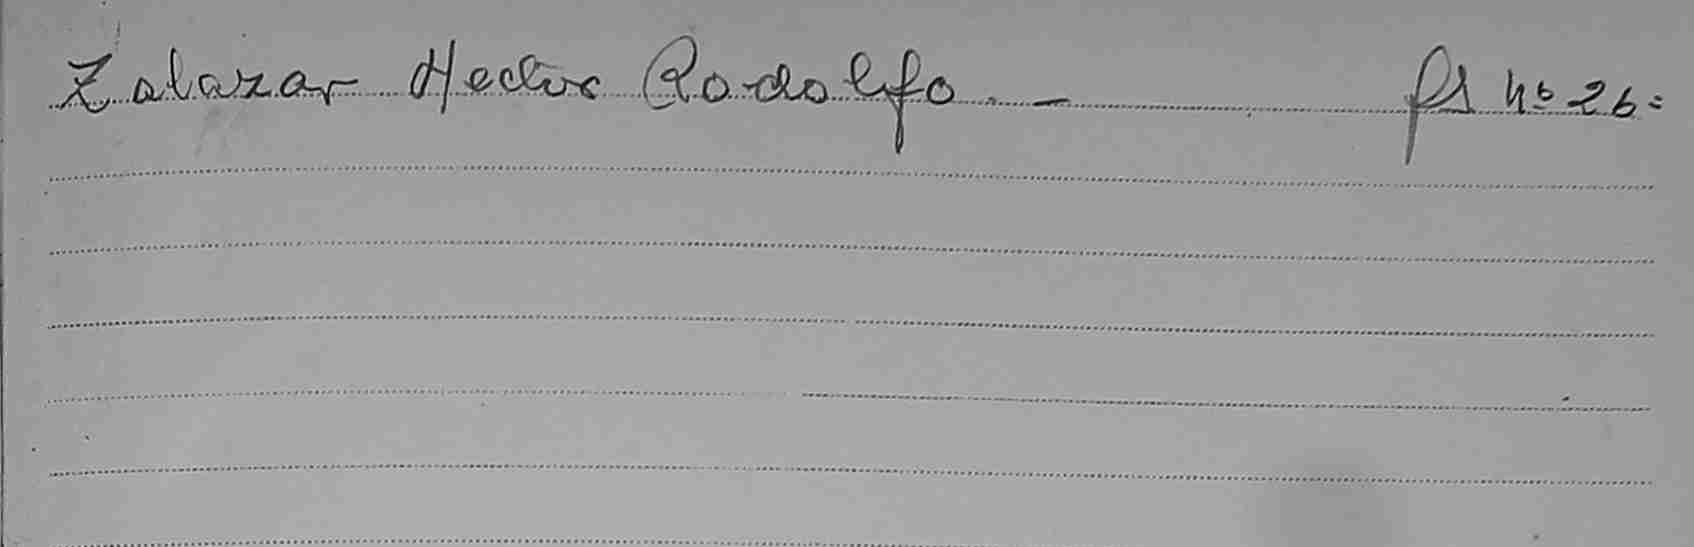 Zalazar Hector Rodolfo. - fs Nº 26=